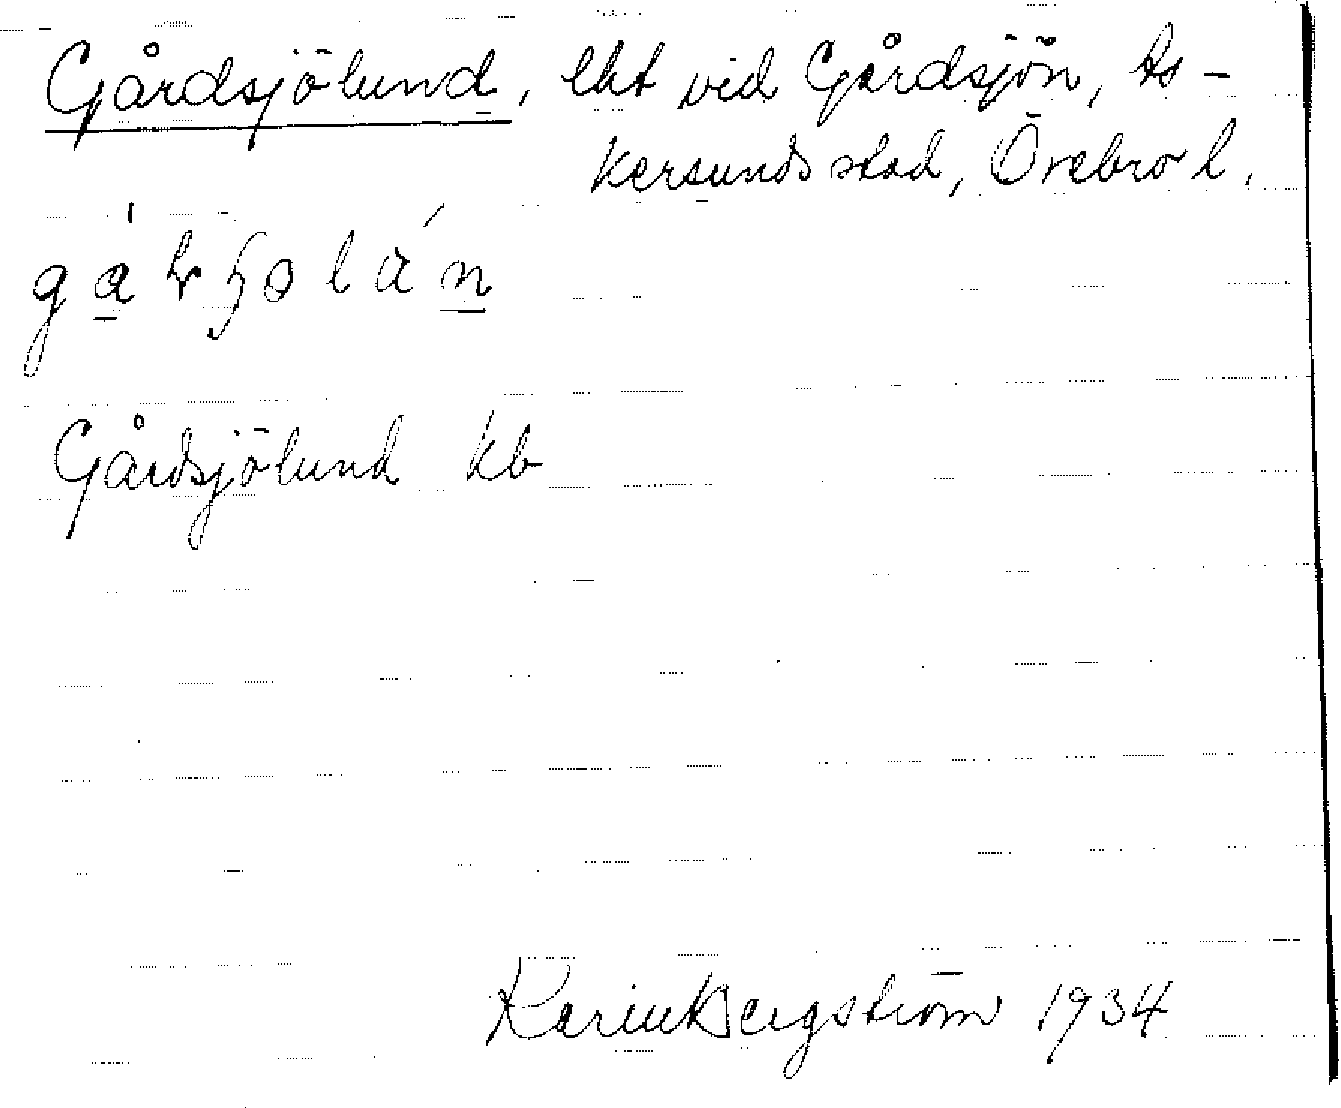 Gårdsjölund, lht vid Gårdsjön, As-
kersunds stad, Örebro l.
Gårdsjölund kb
Karin Bergström 1934